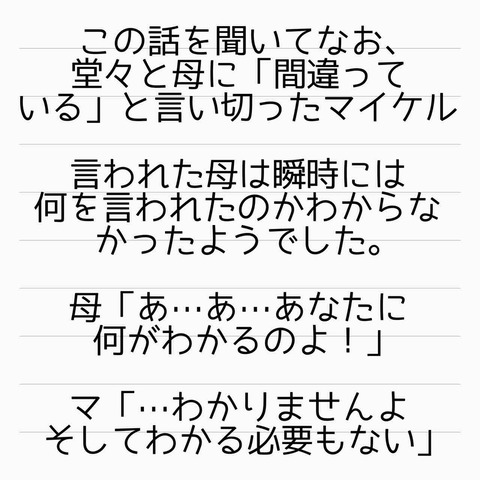 この話を聞いてなお、
堂々と母に「間違って
いる」と言い切ったマイケル
言われた母は瞬時には
何を言われたのかわからな
かったようでした。
母「あ…あ…あなたに
何がわかるのよ！」
マ「…わかりませんよ
そしてわかる必要もない」